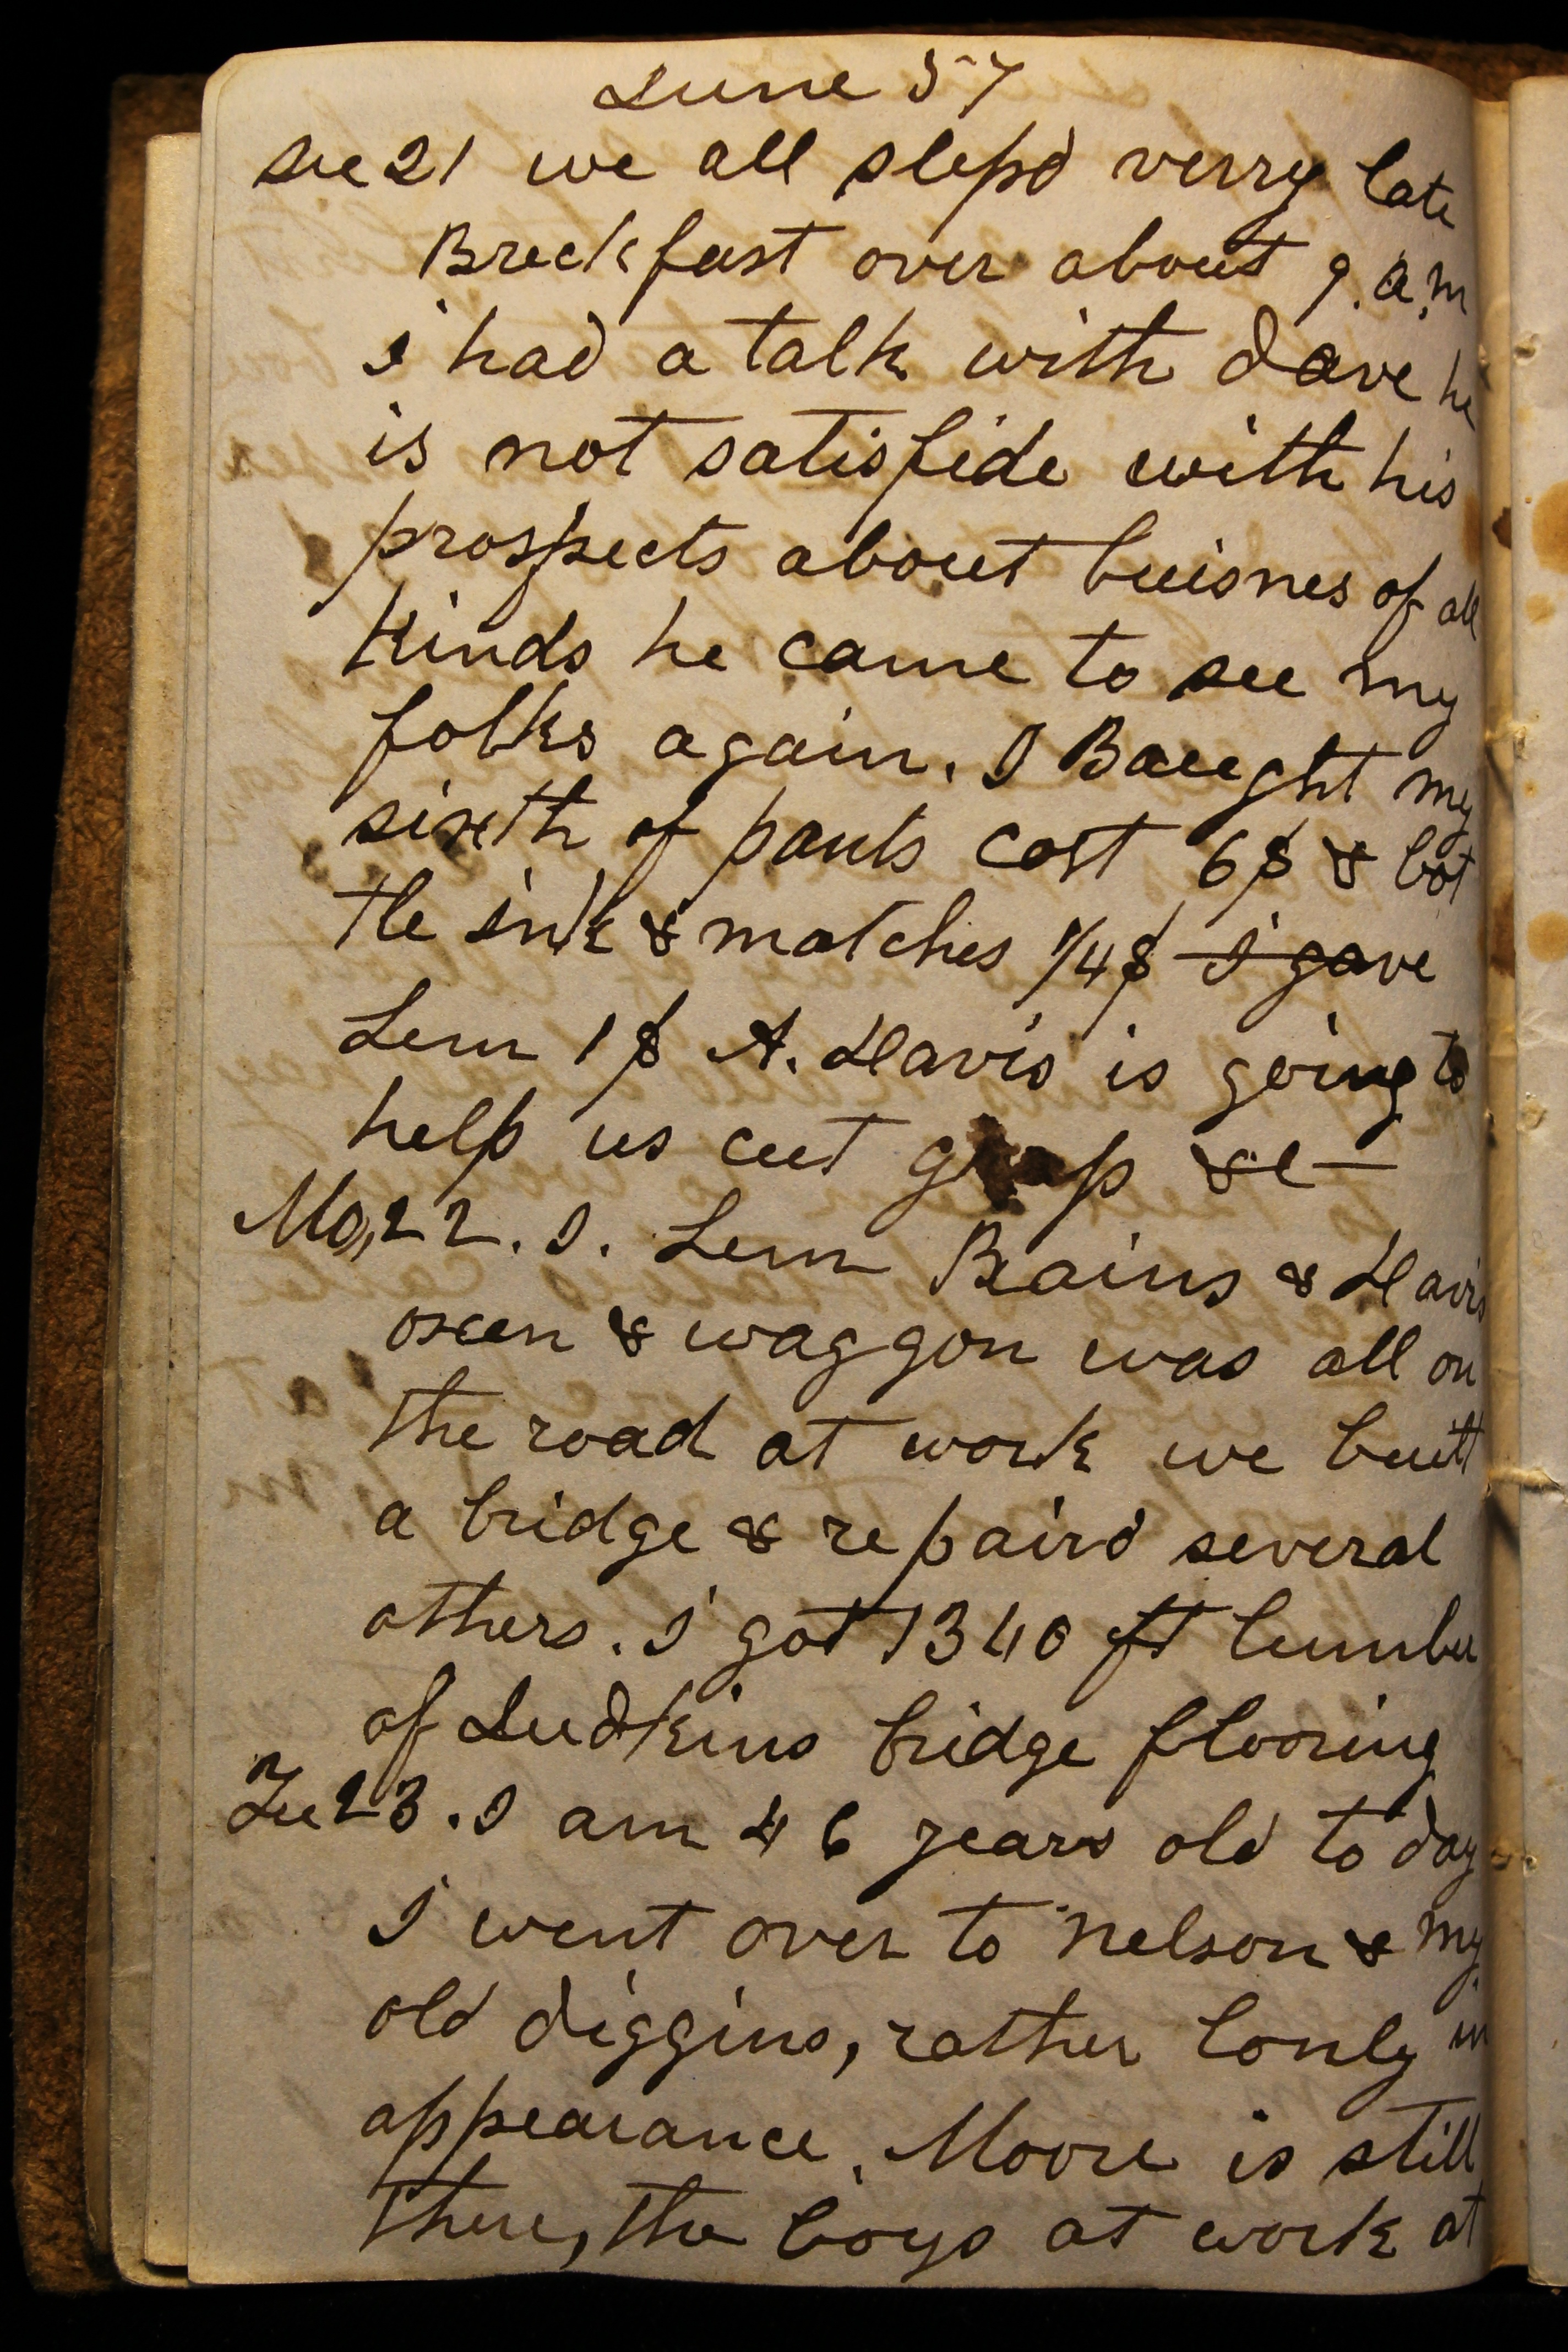 June 57
Su 21 we all slepd verry late
Breckfast over about 9. a.m
I had a talk with dave he
is not satisfide with his
prospects about buisnes of all
Kinds he came to see my
folks again. I Baught my
sixth of pants cost 6$ & bot
tle ink & matches 1/4$ I gave
Lem 1$ A. Davis is going to
help us cut &c —
Mo, 22. I. Lem Bains & Davis
oxen & waggon was all on
the road at work we built
a bridge & repaird several
others. I got 1340 ft lumber
of Judkins bridge flooring
Tu 23. I am 46 years old to day
I went over to Nelson & my
old diggins, rather lonly in
appearance. Moore is still
there, the boys at work at